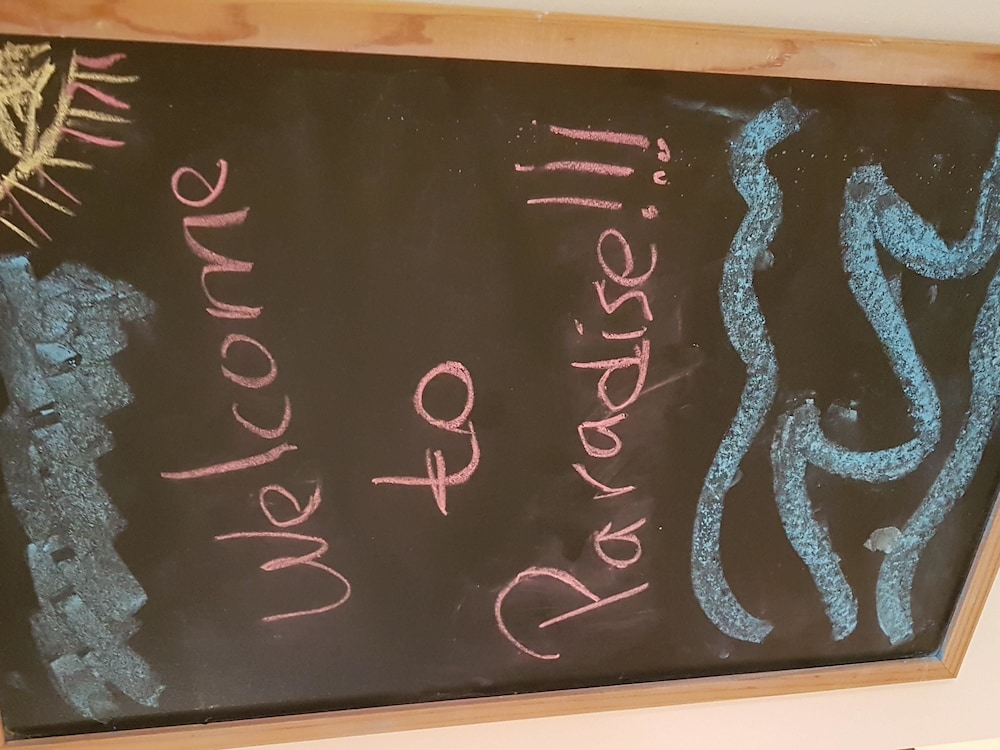 Welcome
to
Paradise!!!